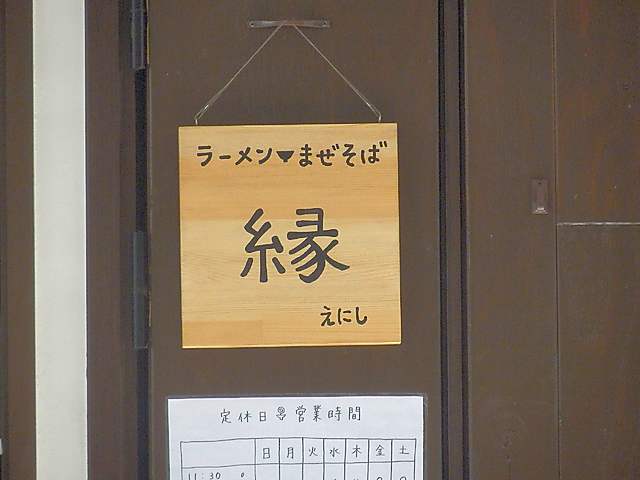 ラーメン▼まぜそば
縁
えにし
定休日 営業時間
日 月 火 水 木 金 土
11:30